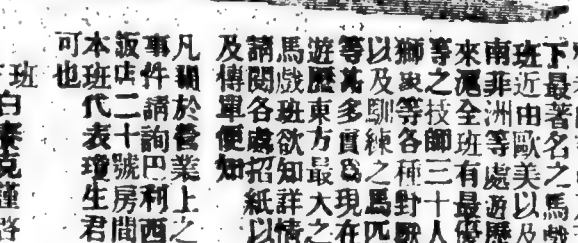 下最著名之馬戲
班近由歐美以及
南非洲等處遊歷
來滬全班有最優
等之技師三十人
獅象等各種野獸
以及馴練之馬匹
等甚多實爲現在
遊歷東方最大之
馬戲班欲知詳情
請閱各處招紙以
及傳單便知
凡關於營業上之
事件請詢巴利西
飯店二十號房間
本班代表瓊生君
可也
班 白泰克謹啓